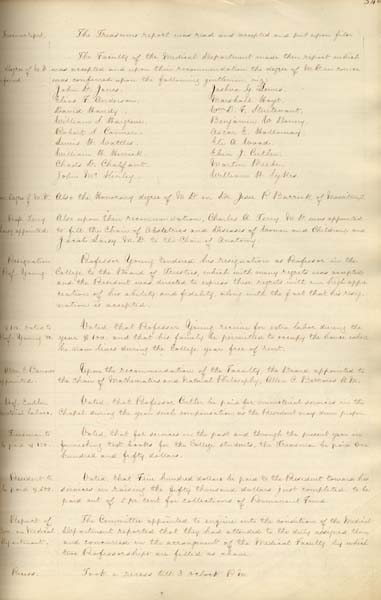 The Treasurers report was read and accepted and put upon file.
The Faculty of the Medical Department made their report which
was accepted and upon their recommendation the degree of M.D. in course
was conferred upon the following gentlemen viz:
John D. Jones. Joshua G.
Elias F. Anderson. Marshall
David Wm D. F.
William S. Hargrave. Benjamin W.
Robert S. Oscar E. Holloway.
Lewis W. Wattles. Eli A. Wood.
William H. Edwin J. Cutler.
Charles D. Chalfant. Martin
John Mc William H. Sykes
Also the Honorary degree of M.D. on Dr. Jesse P. of
Also upon their recommendation, Charles A. Terry M.D. was appointed
to fill the Chair of Obstetrics and Diseases of Women and Children, and
Jacob M.D. to the Chair of Anatomy.
Resignation Prof. Young.
Professor Young tendered his resignation as Professor in the
College to the Board of Trustees, which with many regrets was accepted
and the President was directed to express their regrets with an high appre-
ciation of his ability and fidelity, along with the fact that his resig-
nation is accepted.
Voted that Professor Young receive for extra labor during the
year $100, and that his family be permitted to occupy the house where
he now lives during the College year free of rent.
Upon the recommendation of the Faculty, the Board appointed to
the chair of Mathematics and Natural Philosophy, Allen C. Barrows A.M.
Voted, that Professor Cutler be paid for ministerial services in the
Chapel during the year such compensation as the President may deem proper.
Treasurer to be paid $150.
Voted, that for services in the past and through the present year in
furnishing text books for the College students, the Treasurer be paid one
hundred and fifty dollars.
President to be paid $500.
Voted, that Five hundred dollars be paid to the President towards his
services in raising the fifty thousand dollars just completed to be
paid out of 5 per cent for collections of Permanent Fund.
Report of on Medical Department.
The Committee appointed to enquire into the condition of the Medical
Department reported that they had attended to the duty assigned them
and concurred in the arrangement of the Medical Faculty by which
two Professorships are filled as above.
Recess. Took a recess till 3 o'clock P.M.